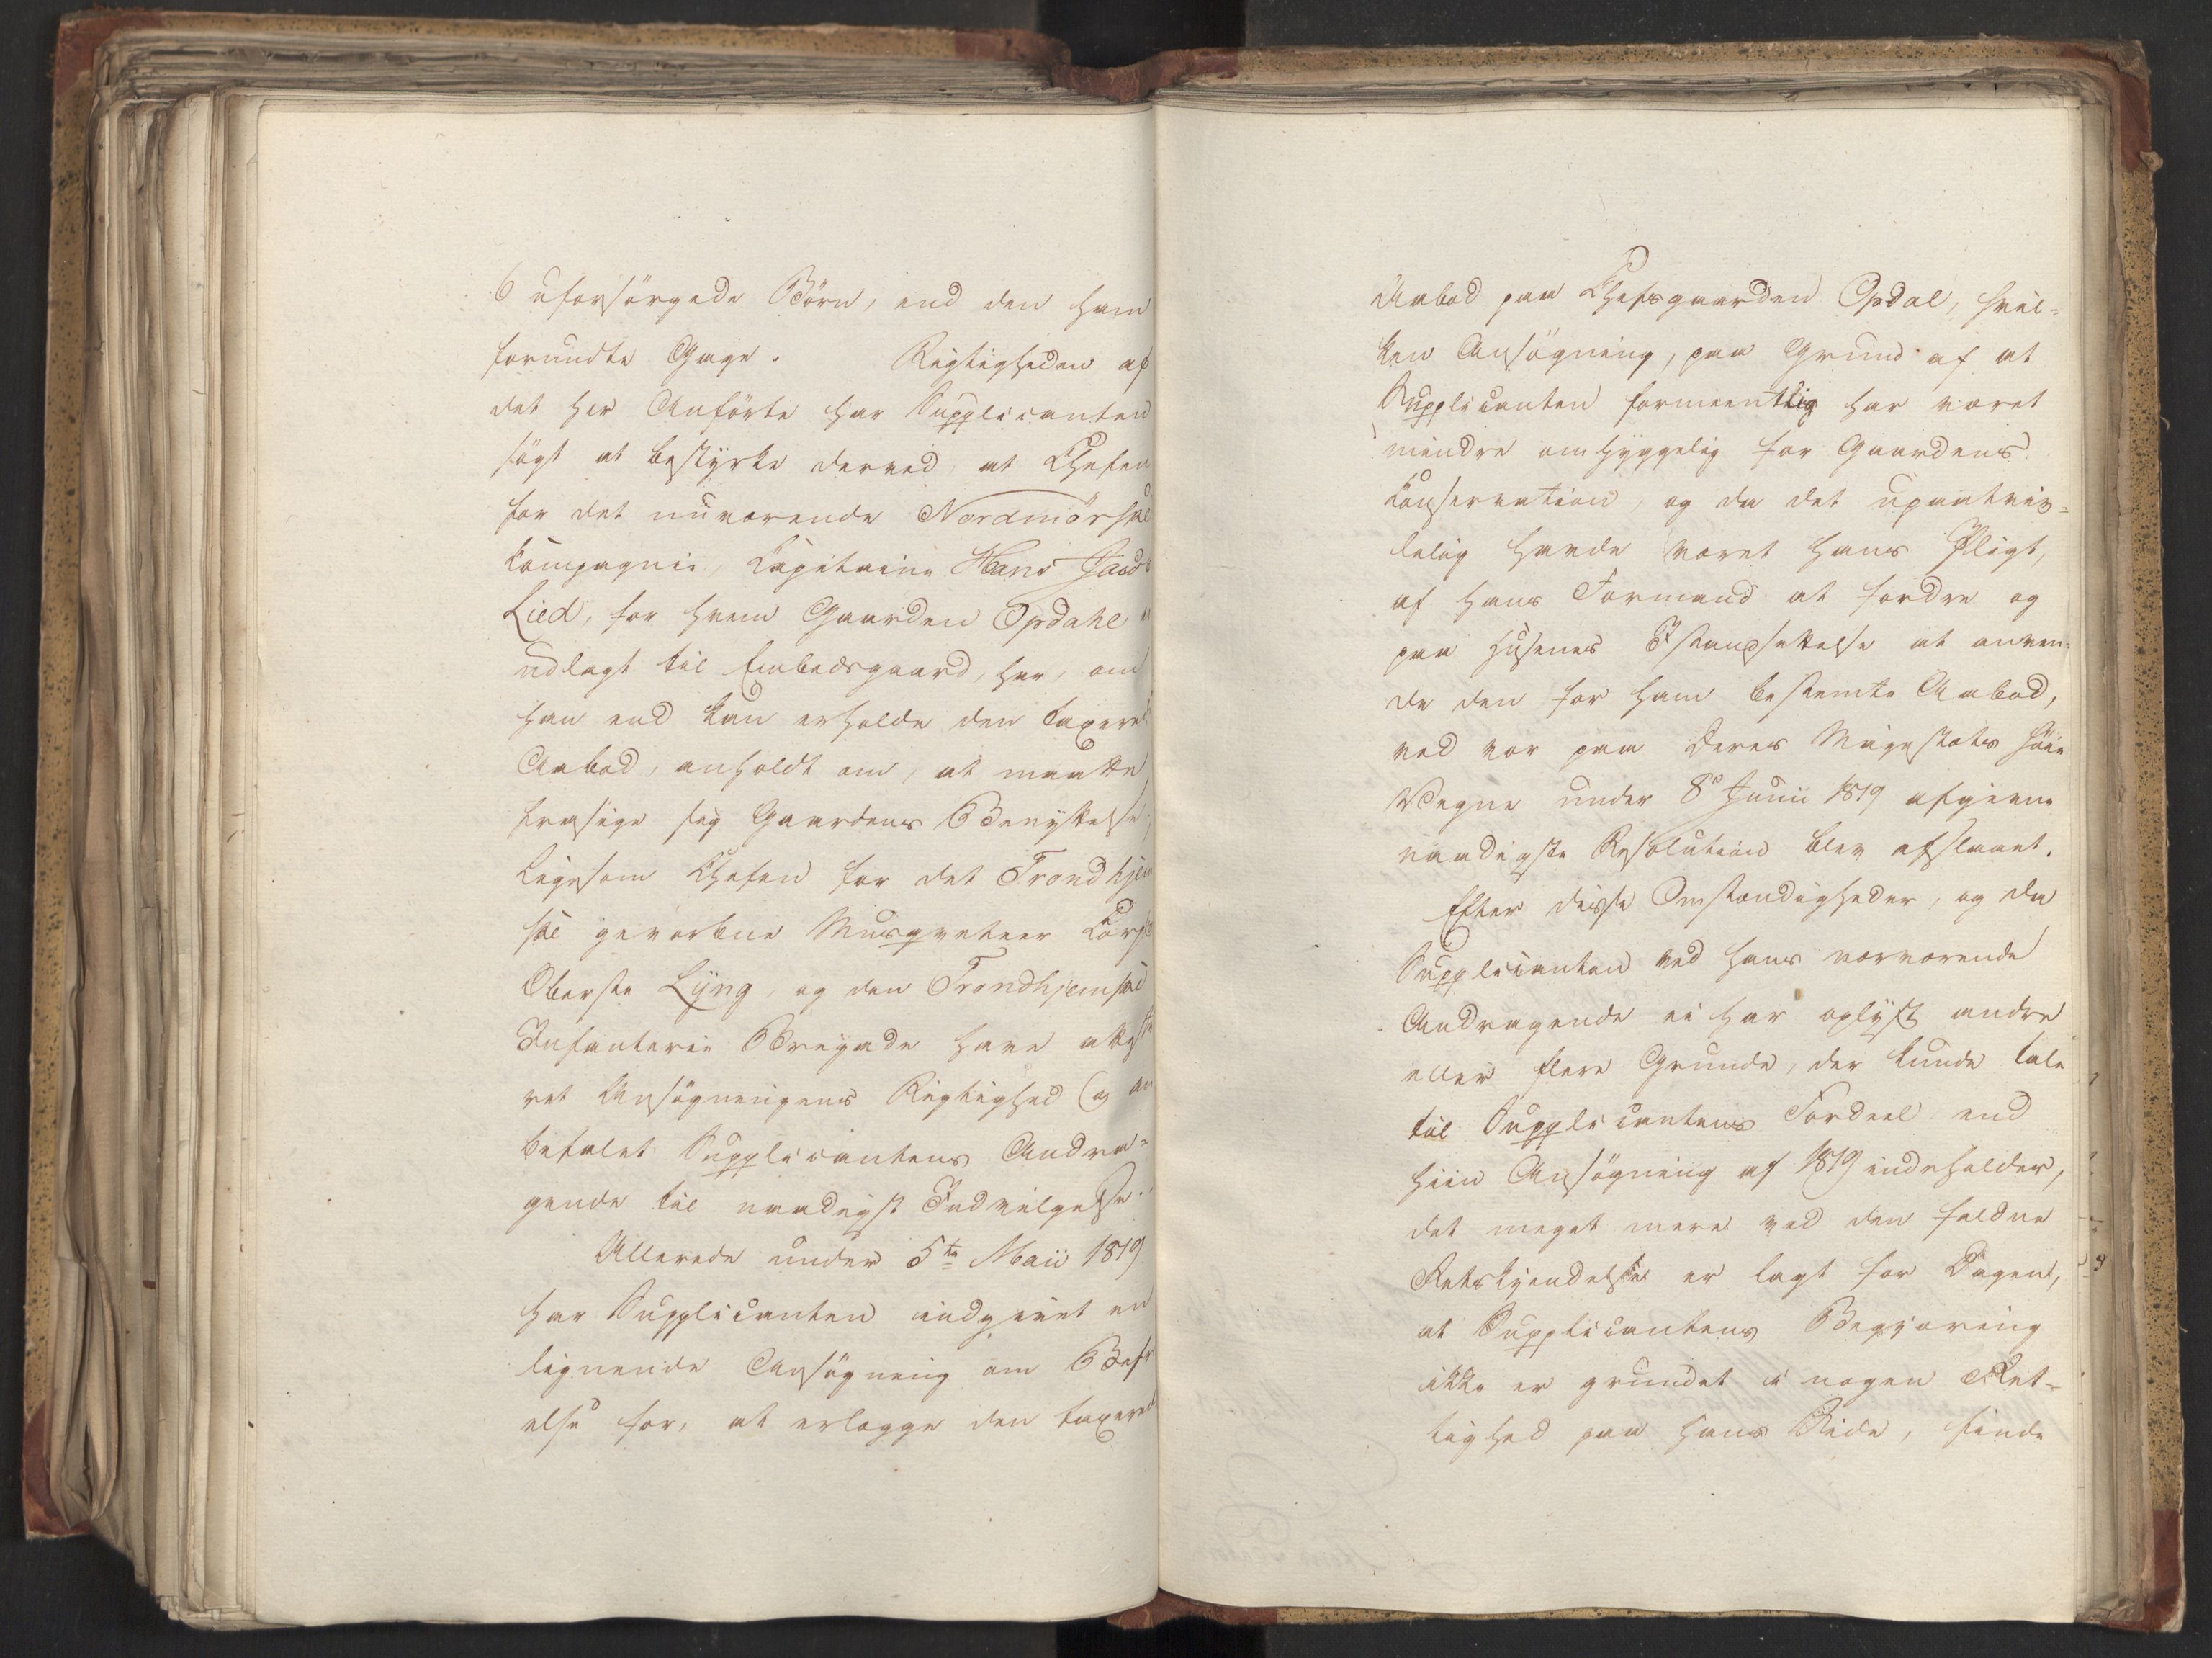 6 uforsörgede Börn, end den ham
forundte Gage. Rigtigheden af
det her Anförte har Supplicanten
sögt at bestyrke derved, at Chefen
for det nuværende Nordmörske
Compagnie, Capitaine Hans Jacob
Lied, for hvem Gaarden Opdahl er
udlagt til Embedsgaard, har, om
han end kan erholde den taxerede
Aabod, anholdt om, at maatte
frasige sig Gaardens Benyttelse,
ligesom Chefen for det Trondhjem
ske gevorbne Musqveteer Corps
Oberste Lÿng, og den Trondhjemske
Infanterie Brigade have atteste
ret Ansögningens Rigtighed og an
befalet Supplicantens Andra-
gende til naadigst Indvilgelse.
Allerede under 5te Maii 1819
har Supplicanten indgivet en
lignende Ansögning om Befri
else for, at erlægge den taxerede
Aabod paa Chefsgaarden Opdal, hvil-
ken Ansögning, paa Grund af at
Supplicanten formeentlig har været
mindre omhyggelig for Gaardens
Conservation, og da det upaatviv-
lelig havde været hans Pligt,
af hans Formand at fordre og
paa Husenes Istandsættelse at anven-
de den for ham bestemte Aabod,
ved vor paa Deres Majestæts höie
Vegne under 8de Junii 1819 afgivne
naadigste Resolution blev afslaaet.
Efter disse Omstændigheder, og da
Supplicanten ved hans nærværende
Andragende ei har oplyst andre
eller flere Grunde, der kunde tale
til Supplicantens Fordeel end
hiin Ansögning af 1819 indeholder,
det meget mere ved den faldne
Retskjendelse er lagt for Dagen,
at Supplicantens Begjæring
ikke er grundet i nogen Ret-
tighed paa hans Side, finde